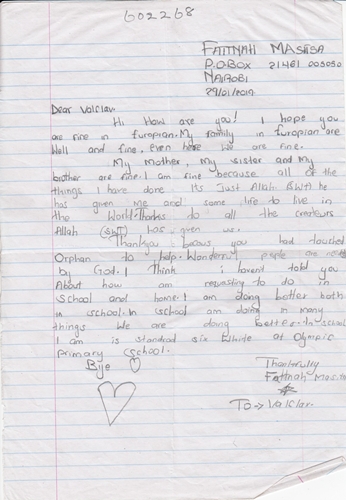 602268
FATTNAH MASITSA
P.O.BOX 21461 005050
NAIROBI
29/01/2019
Dear Valclav.
Hi How are you! I hope you
are fine in furopian. My family in furopian are
Well and fine, even here We are fine.
My Mother, My sister and My
brother are fine. I am fine because all of the
things I have done. Its Just Allah (SWT) he
has given Me and some life to live in
the World. Thanks to all the creteurs
Allah (SWT) has given us.
Thankyou becous you had
Orphan to help. people are
by God. I think i havent told you
About how am requesting to do in
School and home. I am doing better both
in school. In school am doing in many
things We are doing better in school
I am is standrad six White at Olympic
primary school.
Bye
Thankfully
Fattnah Masitsa
To → Valclav.